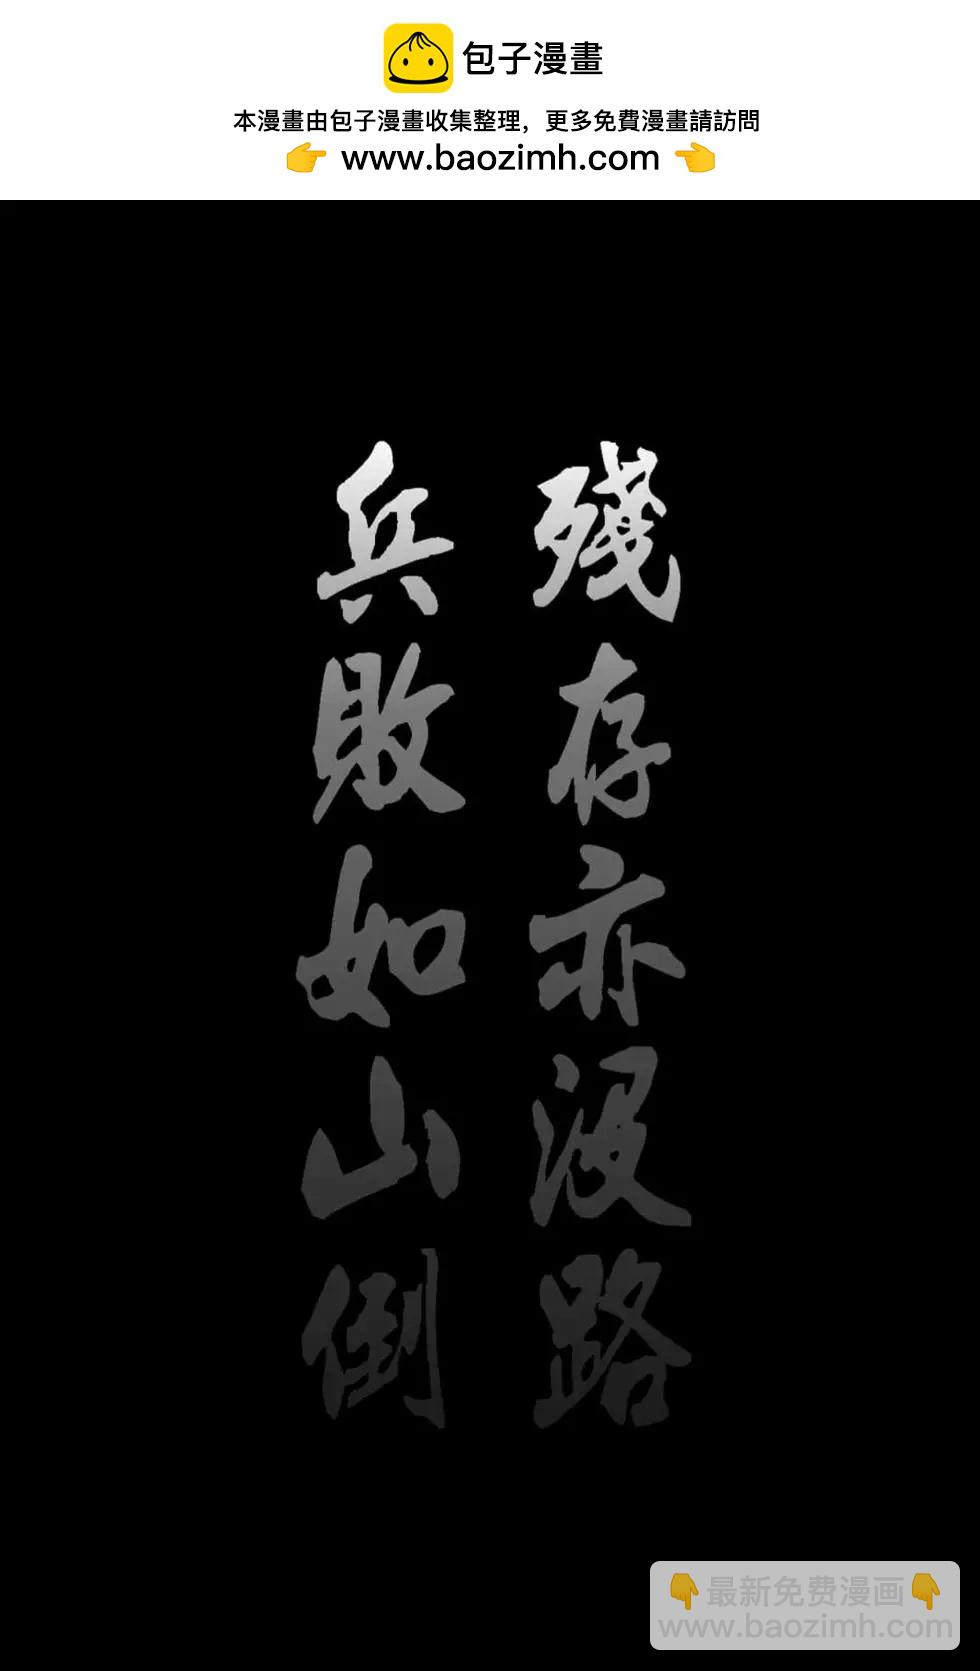 包子漫畫
本漫畫由包子漫畫收集整理，更多免費漫畫請訪問
👉 www.baozimh.com 👈
殘存亦沒路
兵敗如山倒
👇最新免费漫画👇
www.baozimh.com